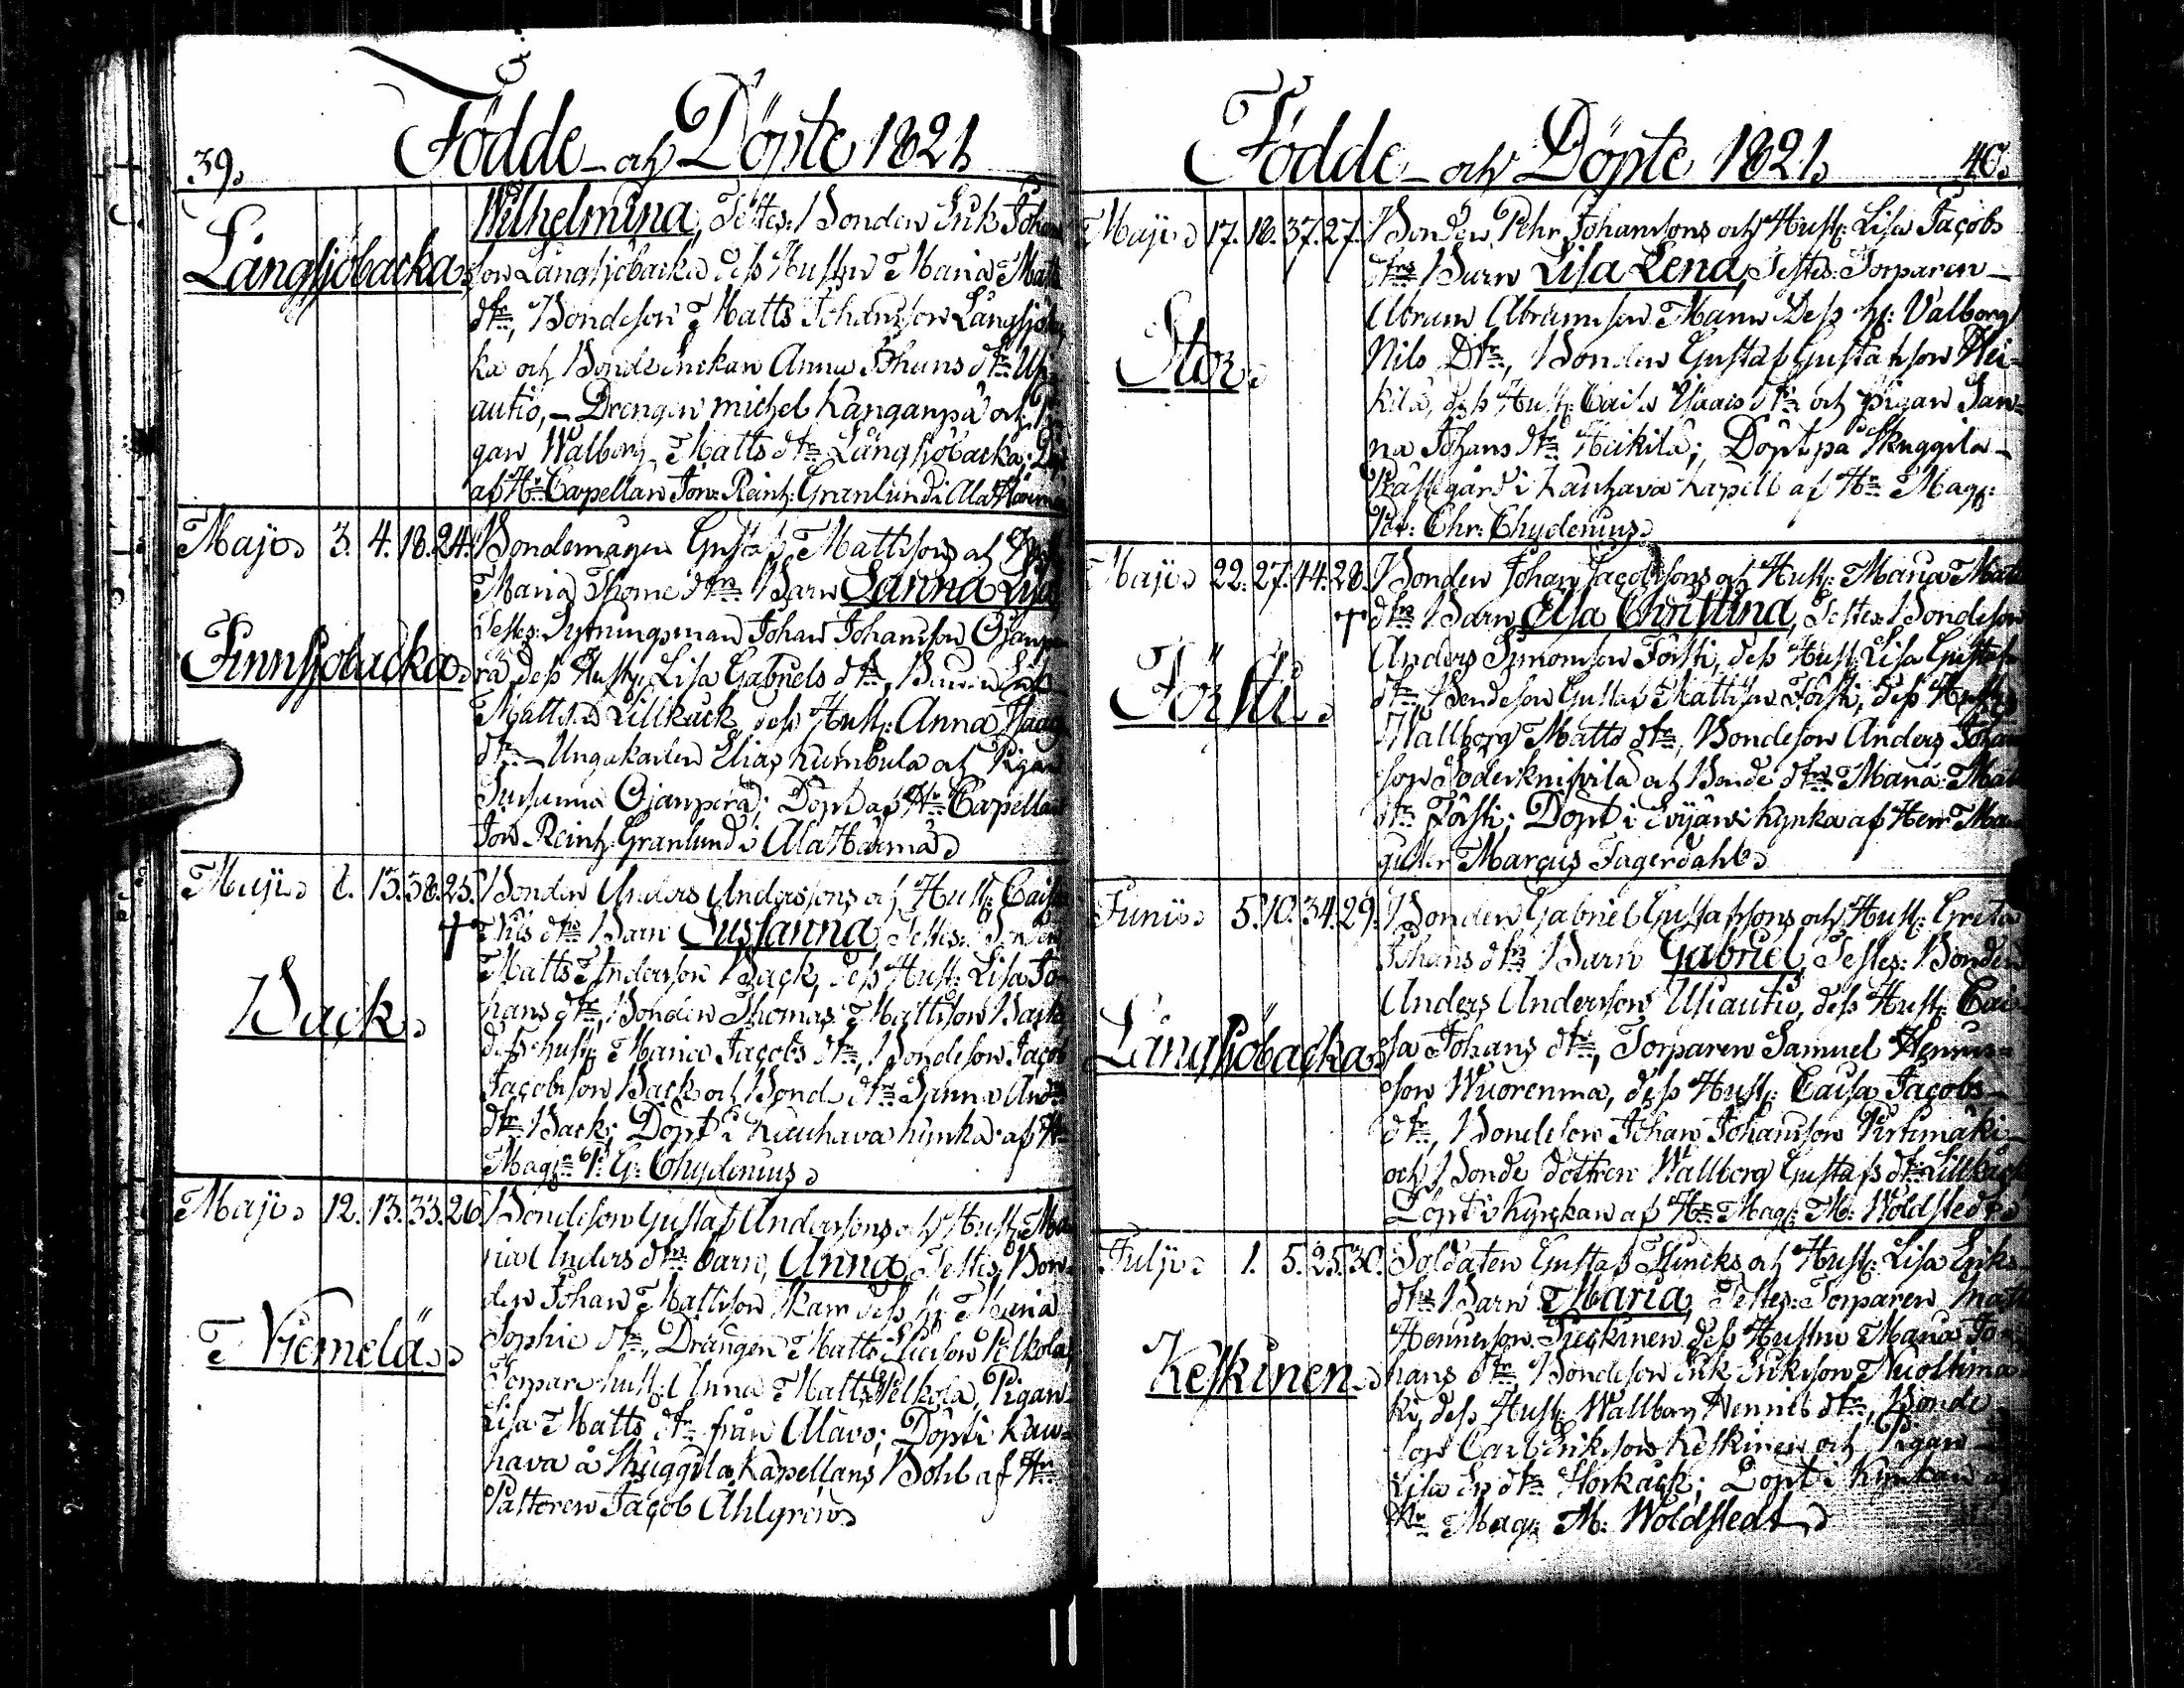 39.
Födde och Döpte 1821.
Långsjöbacka.
Wilhelmina, Testes: Bonden Erik Johan
son Långsjöbacka dess Hustru Maria Matts
dtr, Bondeson Matts Johansson Långsjöbac
ka och Bonde Enkan Anna Johans dtr Usi
autio, Drengen Michel Kanganpä och Pi
gan Walborg Matts dtr Långsjöbacka; Döpt
af Hr Capellan Jon: Reinh: Granlund i Ala Härmä
Maji. 3. 4. 18. 24.
Finnsjöbacka.
Bondemågen Gustaf Mattssons och Hust
Maria Thome dtrs Barn Sanna Lisa
Testes: Sytningsman Johan Johansson Ojanpe
rä dess Hust: Lisa Gabriels dtr, Bonden
Mattsson Lillkack dess Hust: Anna Isaags
dtr Ungakarlen Elias Kumbula och Pigan
Susanna Ojanperä; Döpt af Hr Capellan
Jon Reinh Granlund i Ala Härmä.
Maji. 13. 38. 25.
Back.
Bonden Anders Anderssons och Hust: Caisa
Nils dtrs Barn Susanna, Testes: Bonden
Matts Andersson Back, dess Hust: Lisa Jo
hans dtr, Bonden Thomas Mattsson Back
dess hust: Maria Jacobs dtr, Bondeson Jacob
Jacobsson Back och Bonde dtr Sanna Anders
dtr Back; Döpt i Kauhava kyrka af Hr
Magr P: G: Chydenius.
Maji. 12. 13. 33. 26.
Niemelä.
Bondeson Gustaf Anderssons och Hust: Ma
ria Anders dtrs barn, Anna, Testes: Bon
den Johan Mattsson Kam dess h: Maria
Sophie dtr, Drängen Matts Eliesson Pelkola,
Torpare hust: Anna Matts Pelkola, Pigan
Lisa Matts dtr från Alavo; Döpt i Kau
hava å Skuggila Kapellans Bohl af Hr
Pastoren Jacob Ahlgren.
Födde och Döpte 1821.
40.
Maji. 17. 18. 37. 27.
Stor.
Bonden Pehr Johanssons och Hust: Lisa Jacobs
dtrs Barn Lisa Lena, Testes: Torparen
Abram Abramsson Mann Dess h: Valborg
Nils Dtr, Bonden Gustaf Gustafsson Hei
kilä, dess Hust: Caisa Isaacs dtr och Pigan San
na Johans dtr Heikilä; Döpt på Skuggila
Prästgård i Kauhava Kapell af Hr Mag:
Petr: Chr: Chydenius.
Maji. 22. 27. 44. 28.
Försti.
Bonden Johan Jacobssons och Hust: Maria Matts
dtrs Barn Elsa Christina, Testes: Bondeson
Anders Simonsson Försti, dess Hust: Lisa Gustafs
dtr, Bondeson Gustaf Mattsson Försti, dess Hust
Wallborg Matts dtr, Bondeson Anders Johan
son Söderknivilä och Bonde dtr Maria Matts
dtr Försti; Döpt i Evijärvi kyrka af Herr Ma
gister Marcus Fagerdahl.
Junii. 5. 10. 34. 29.
Långsjöbacka.
Bonden Gabriel Gustafssons och Hust: Greta
Johans dtrs Barn Gabriel, Testes: Bonden
Anders Andersson Usiautio, dess Hust: Cai
sa Johans dtr, Torparen Samuel Henriks
son Wuorenma, dess Hust: Caisa Jacobs
dtr, Bondeson Johan Johansson Pirtimäki
och Bonde dottren Wallborg Gustafs dtr Lillkack
Döpt i Kyrkan af Hr Mag: M: Woldstedt.
Julji. 1. 5. 25. 30.
Keskinen.
Soldaten Gustaf Flincks och Hust: Lisa Eriks
dtrs Barn Maria, Testes: Torparen Matts
Henriksson dess Hustru Maria Jo
hans dtr Bondeson Erik Eriksson
ki, dess Hust: Wallborg Henriks dtr, Bonde
son Carl Eriksson Keskinen och Pigan
Lisa dtr Storkack; Döpt i Kyrkan af
Hr Mag: M: Woldstedt.